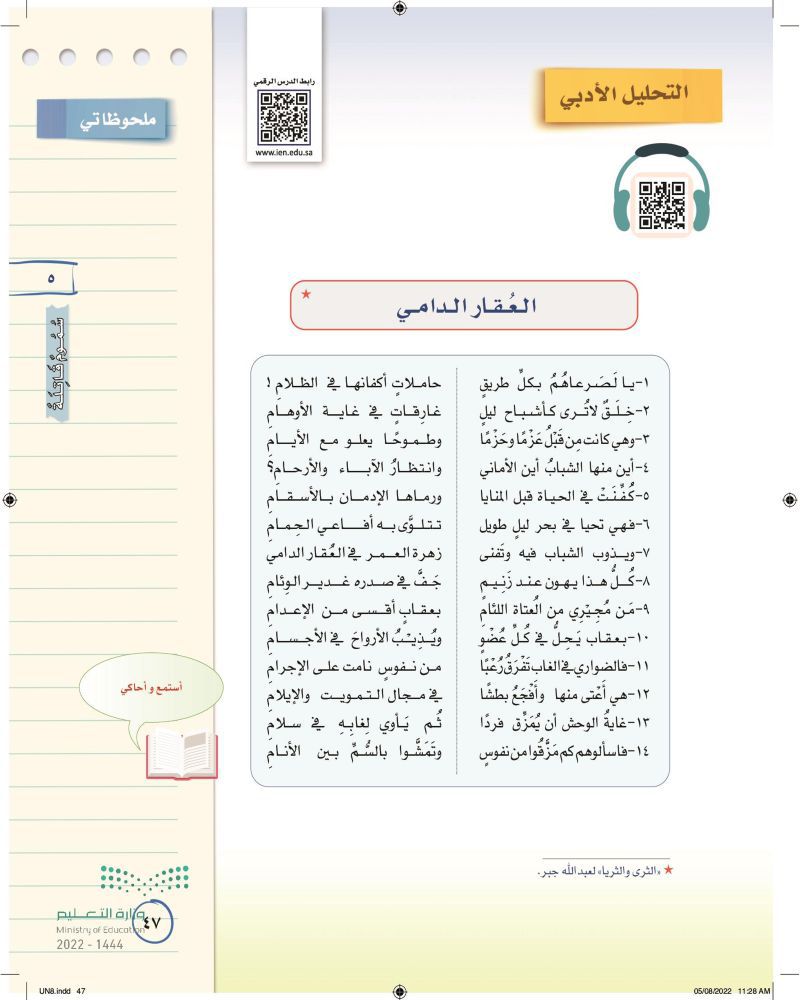 التحليل الأدبي
رابط الدرس الرقمي
www.ien.edu.sa
ملحوظاتي
٥
سُمُومٌ قَاتِلَةٌ
العُقار الدامي ★
١- يا لَصَرعاهُمُ بكلِّ طريقٍ حاملاتٍ أكفانها في الظلامِ !
٢- خِلَقٌ لاتُرى كأشباح ليلٍ غارِقاتٍ في غاية الأوهامِ
٣- وهي كانت مِن قَبْلُ عَزْمًا وحَزْمًا وطموحًا يعلو مع الأيامِ
٤- أين منها الشبابُ أين الأماني وانتظارُ الآباء والأرحامِ؟
٥- كُفِّنَتْ في الحياة قبل المنايا ورماها الإدمان بالأسقامِ
٦- فهي تحيا في بحر ليلٍ طويل تتلوَّى به أفاعي الحِمامِ
٧- ويذوب الشباب فيه وتَفنى زهرة العمر في العُقار الدامي
٨- كُلُّ هذا يهون عند زَنِيمٍ جَفَّ في صدره غدير الوِئامِ
٩- مَن مُجِيْرِي من العُتاة اللئامِ بعقابٍ أقسى من الإعدامِ
١٠- بعقاب يَحِلُّ في كُلِّ عُضْوٍ ويُذِيْبُ الأرواحَ في الأجسامِ
١١- فالضواري في الغاب تَفْرَقُ رُعْبًا من نفوسٍ نامت على الإجرامِ
١٢- هي أَعْتى منها وأَفْجَعُ بطشًا في مجال التمويت والإيلامِ
١٣- غايةُ الوحش أن يُمَزِّق فردًا ثُم يَأوي لِغابِهِ في سلامِ
١٤- فاسألوهم كم مَزَّقُوا من نفوسٍ وتَمَشَّوا بالسُّمِّ بين الأنامِ
أستمع و أحاكي
★ «الثرى والثريا» لعبدالله جبر.
وزارة التعليم
Ministry of Education
2022 - 1444
٤٧
UN8.indd 47
05/08/2022 11:28 AM